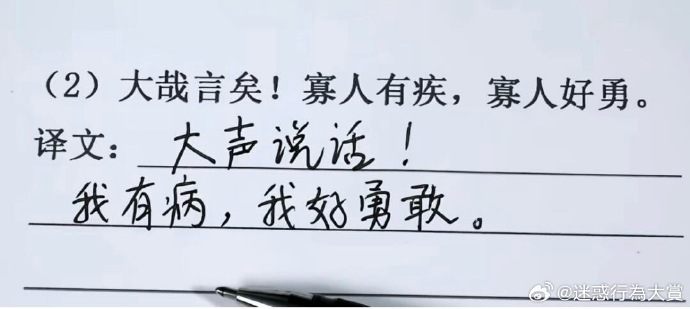 （2）大哉言矣！寡人有疾，寡人好勇。
译文：大声说话！
我有病，我好勇敢。
@迷惑行為大賞